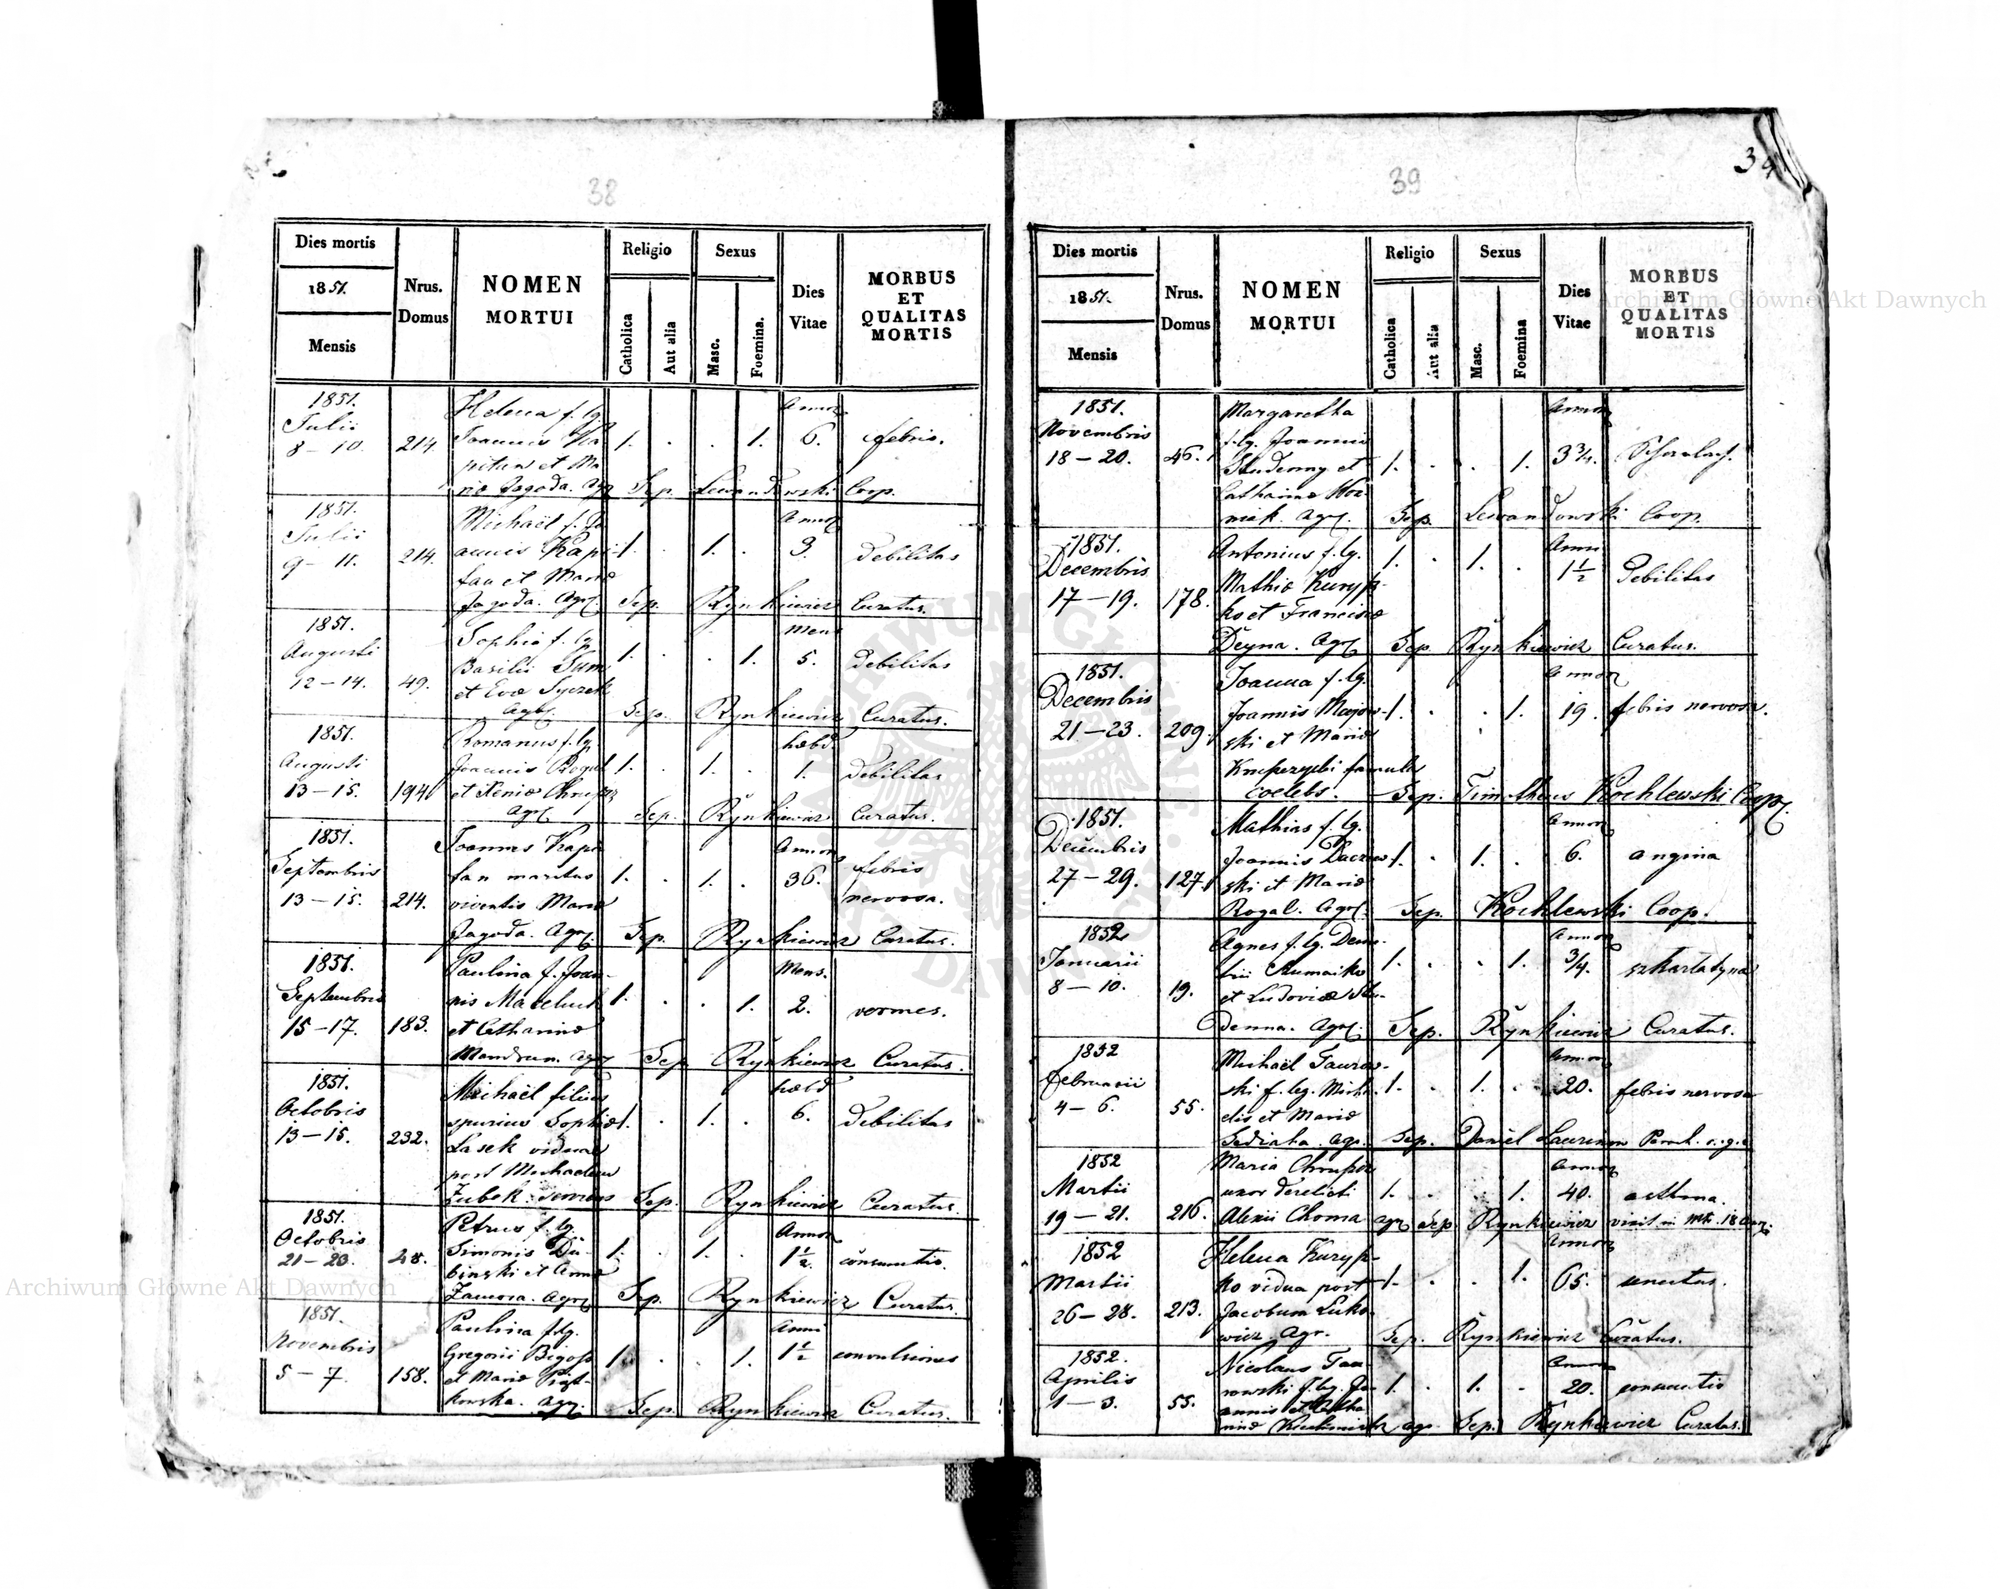 38
Dies mortis
1851.
Mensis
Nrus.
Domus
NOMEN
MORTUI
Religio
Catholica
Aut alia
Sexus
Masc.
Foemina.
Dies
Vitae
MORBUS
ET
QUALITAS
MORTIS
1851.
Julii
8 – 10.
214.
Helena f. lg.
Joannis Ka-
pitan et Ma-
riæ Jagoda. Agr.
1. . . 1.
Annor.
6.
febris.
Sep. Lewandowski Coop.
1851.
Julii
9 – 11.
214.
Michaël f. Jo-
annis Kapi-
tan et Mariæ
Jagoda. Agr.
1. . 1. .
Annor.
3.
Debilitas
Sep. Rynkiewicz Curatus.
1851.
Augusti
12 – 14.
49.
Sophia f. lg.
Basilii
et Evæ
Agr.
1. . . 1.
Mens.
5.
Debilitas
Sep. Rynkiewicz Curatus.
1851.
Augusti
13 – 15.
194
Romanus f. lg.
Joannis Rogal
et Xeniæ
Agr.
1. . 1. .
hebd.
1.
Debilitas
Sep. Rynkiewicz Curatus.
1851.
Septembris
13 – 15.
214.
Joannes Kapi-
tan maritus
viventis Mariæ
Jagoda. Agr.
1. . 1. .
Annor.
36.
febris
nervosa.
Sep. Rynkiewicz Curatus.
1851.
Septembris
15 – 17.
183.
Paulina f. Joan-
nis
et Catharinæ
Agr.
1. . . 1.
Mens.
2.
vermes.
Sep. Rynkiewicz Curatus.
1851.
Octobris
13 – 15.
232.
Michaël filius
spurius Sophiæ
Lasek viduæ
post Michaelem
Zubek
1. . 1. .
hebd
6.
Debilitas
Sep. Rynkiewicz Curatus.
1851.
Octobris
21 – 23.
48.
Petrus f. lg.
Simonis Du-
binski et Annæ
Zamora. Agr.
1. . 1. .
Annor.
1½.
consumtio.
Sep. Rynkiewicz Curatus.
1851.
Novembris
5 – 7.
158.
Paulina f. lg.
Gregorii Bigos
et Mariæ Piąt-
kowska. Agr.
1. . . 1.
Anni
1½
convulsiones
Sep. Rynkiewicz Curatus.
39
34
Dies mortis
1851.
Mensis
Nrus.
Domus
NOMEN
MORTUI
Religio
Catholica
Aut alia
Sexus
Masc.
Foemina
Dies
Vitae
MORBUS
ET
QUALITAS
MORTIS
1851.
Novembris
18 – 20.
46.
Margaretha
f. lg. Joannis
Studenny et
Catharinæ Woz-
niak. Agr.
1. . . 1.
Annor.
3¾.
Scharlach.
Sep. Lewandowski Coop.
1851.
Decembris
17 – 19.
178.
Antonius f. lg.
Mathiæ Kuryp-
ko et Franciscæ
Deyna. Agr.
1. . 1. .
Anni
1½
Debilitas
Sep. Rynkiewicz Curatus.
1851.
Decembris
21 – 23.
209.
Joanna f. lg.
Joannis Majow-
ski et Mariæ
famula
coelebs.
1. . . 1.
Annor.
19.
febris nervosa.
Sep. Timotheus Kochlewski Coop.
1851.
Decembris
27 – 29.
127.
Mathias f. lg.
Joannis
ski et Mariæ
Rogal. Agr.
1. . 1. .
Annor.
6.
angina
Sep. Kochlewski Coop.
1852
Januarii
8 – 10.
19.
Agnes f. lg. Deme-
trii
et Ludovicæ Stu-
denna. Agr.
1. . . 1.
Annor.
¾.
szkarlatyna
Sep. Rynkiewicz Curatus.
1852
Februarii
4 – 6.
55.
Michaël Taurow-
ski f. lg. Micha-
elis et Mariæ
Agr.
1. . 1. .
Annor.
20.
febris nervosa
Sep. Daniël
1852
Martii
19 – 21.
216.
Maria
uxor derelicti
Alexii Choma agr
1. . . 1.
Annor.
40.
asthma.
Sep Rynkiewicz
1852
Martii
26 – 28.
213.
Helena Kuryp-
ko vidua post
Jacobum Luko-
wicz. Agr.
1. . . 1.
Annor.
65.
senectus.
Sep. Rynkiewicz Curatus.
1852.
Aprilis
1 – 3.
55.
Nicolaus Tau-
rowski f. lg. Jo-
annis et Catha-
rinæ
1. . 1. .
Annor.
20.
consumtio
Sep. Rynkiewicz Curatus.
Archiwum Główne Akt Dawnych
Archiwum Główne Akt Dawnych
ARCHIWUM GŁÓWNE AKT DAWNYCH